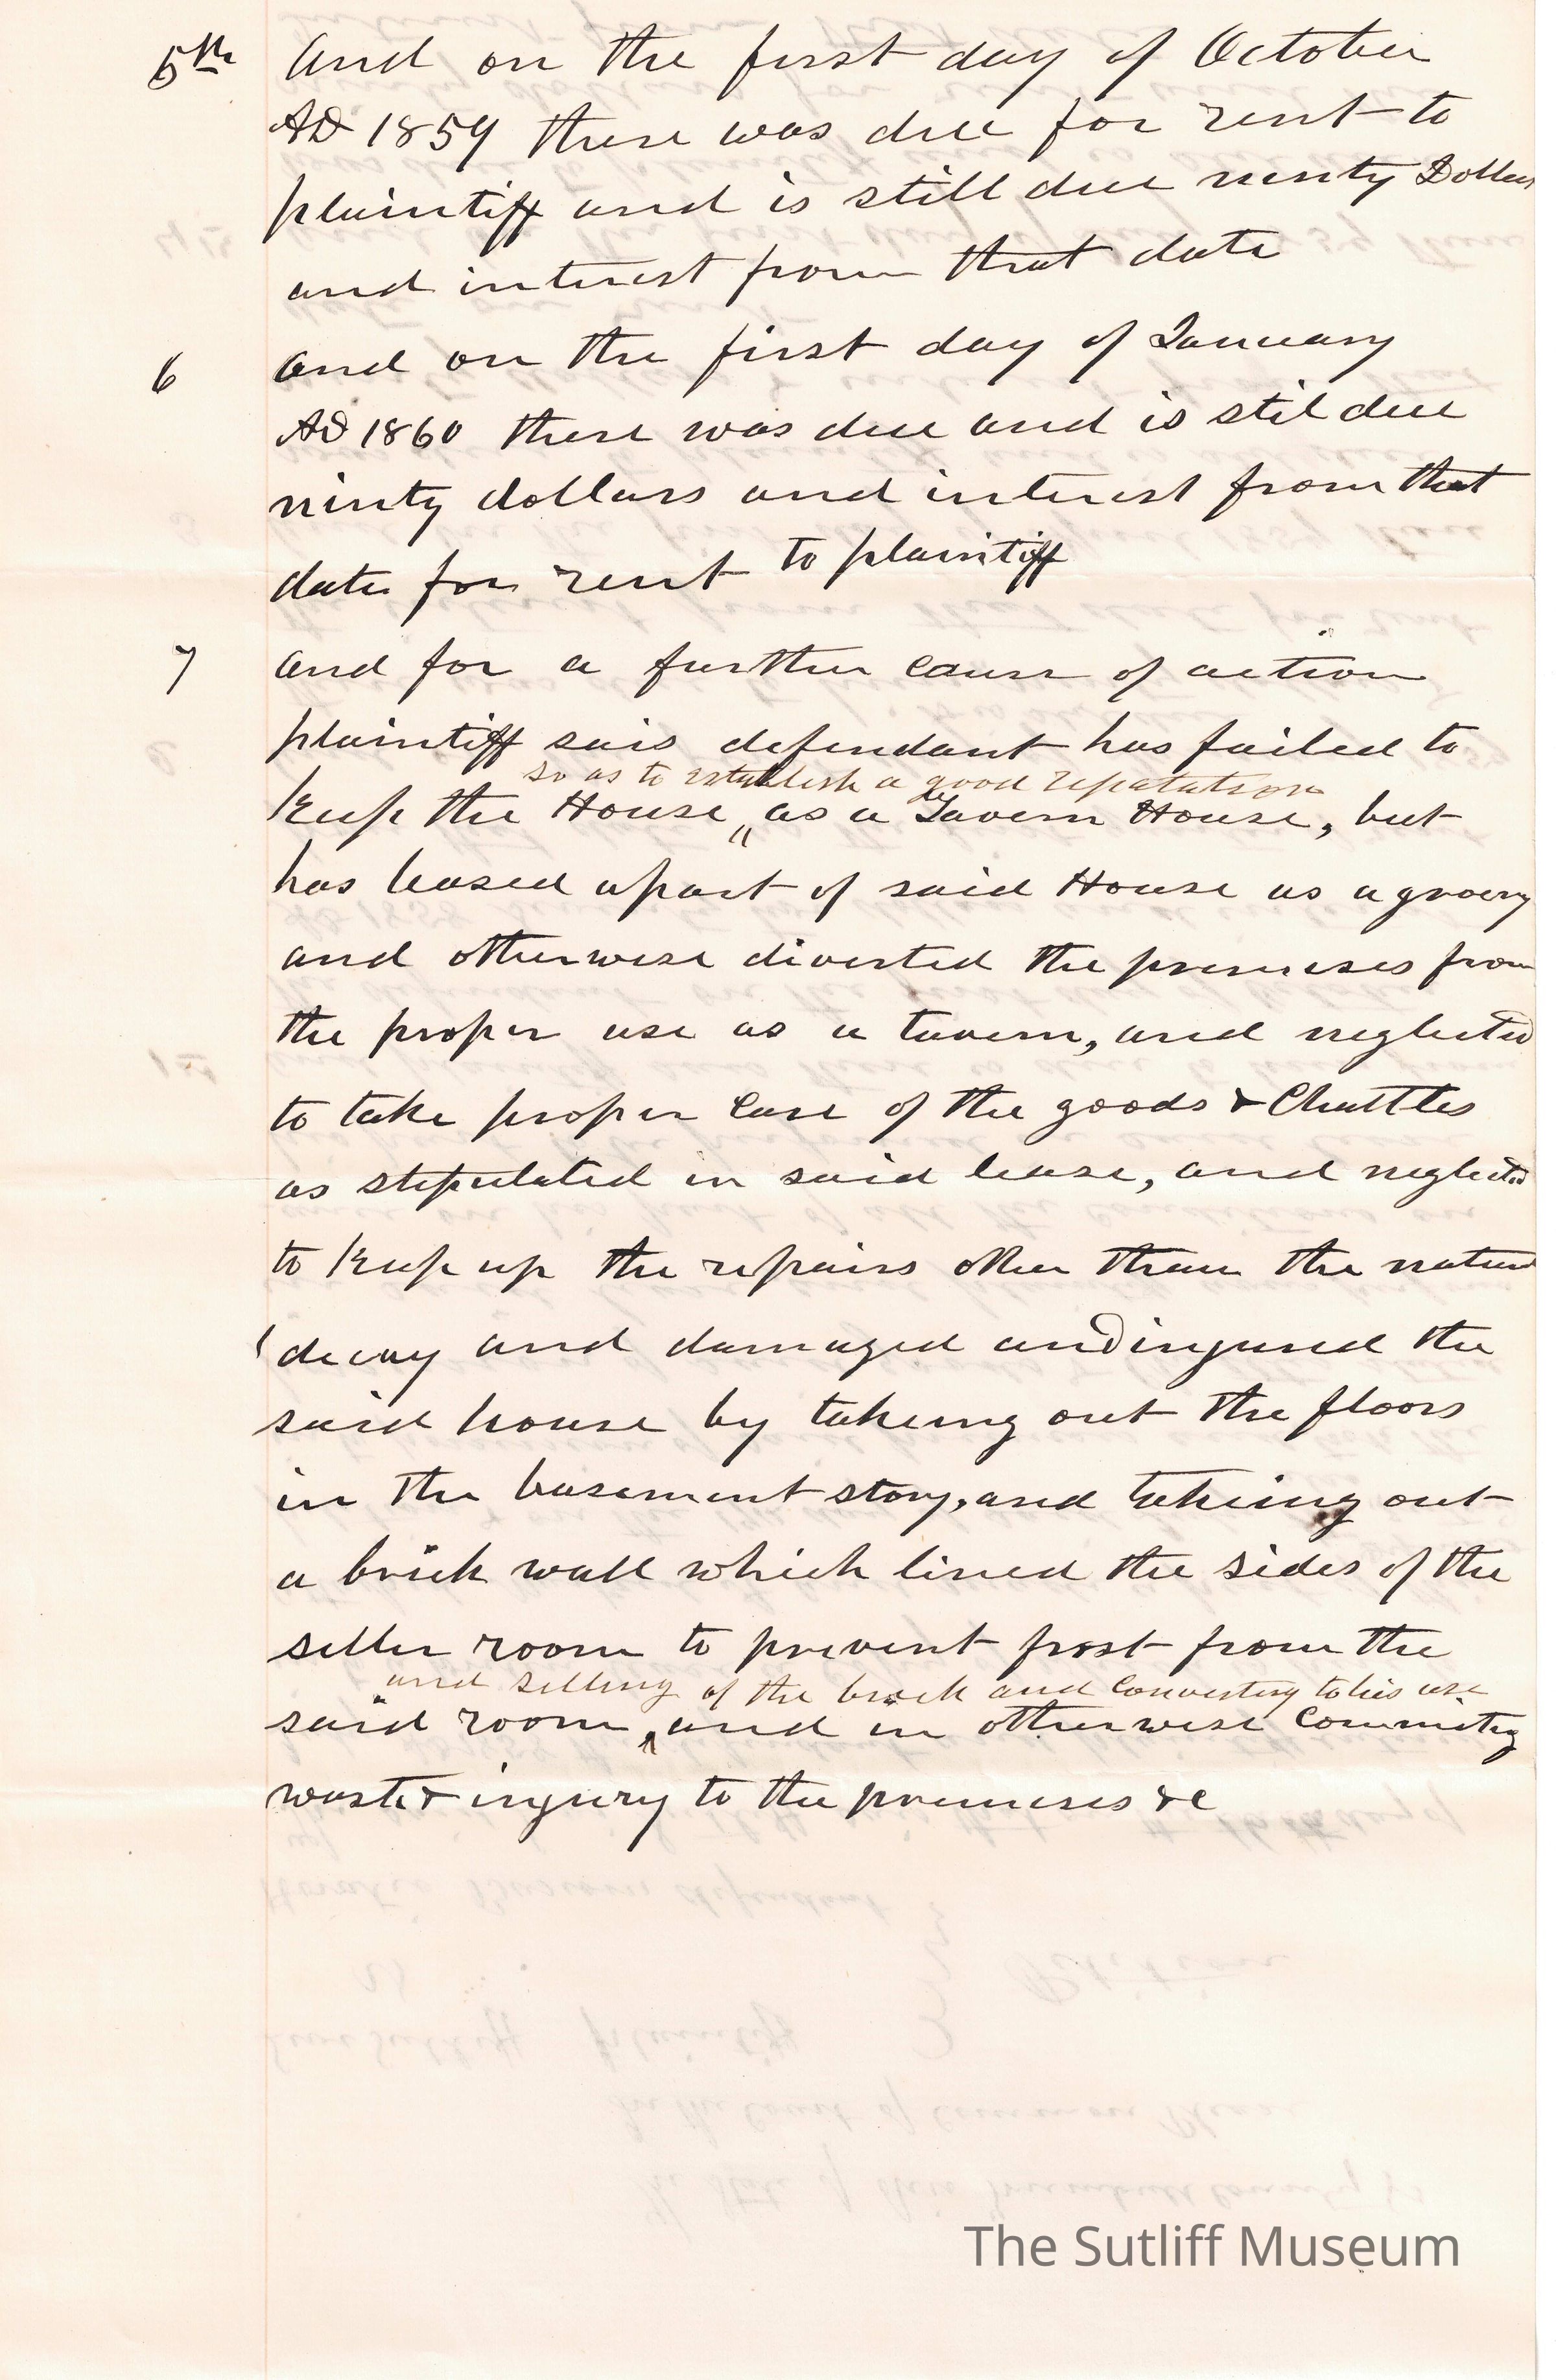 5th And on the first day of October
AD 1859 there was due for rent to
plaintiff and is still due ninty Dollars
and interest from that date
6 And on the first day of January
AD 1860 there was due and is stil due
ninty dollars and interest from that
date for rent to plaintiff
7 And for a further cause of action
plaintiff sais defendant has failed to
so as to establish a good reputation
keep the House as a Tavern House, but
has leased apart of said House as a grocery
and otherwise diverted the premises from
the proper use as a tavern, and neglected
to take proper care of the goods & Chattles
as stipulated in said lease, and neglected
to keep up the repairs other than the natural
decay and damaged and injured the
said house by takeing out the floors
in the basement story, and takeing out
a brick wall which lined the sides of the
seller room to prevent frost from the
and selling of the brick and converting to his use
said room, and in otherwise commiting
waste & injury to the premises &c
The Sutliff Museum